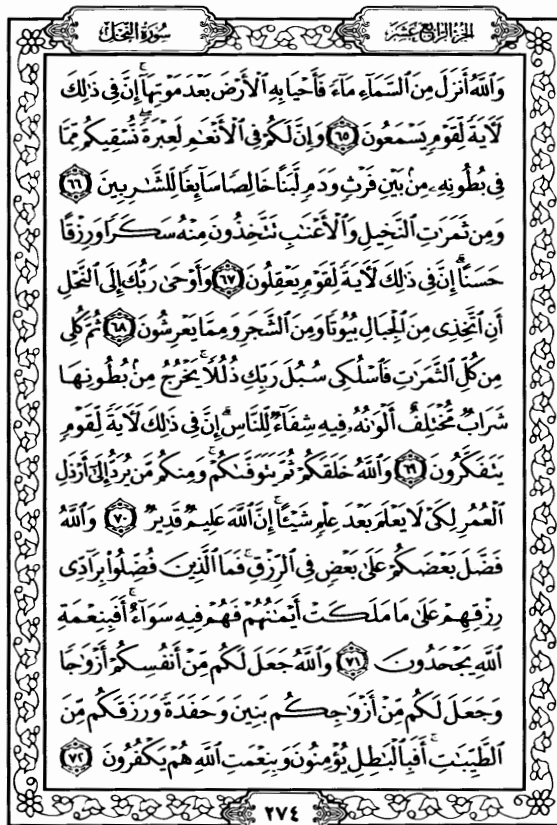 سُورَةُ النَّحْلِ
الجُزْءُ الرَّابِعَ عَشَرَ
وَاللَّهُ أَنزَلَ مِنَ السَّمَاءِ مَاءً فَأَحْيَا بِهِ الْأَرْضَ بَعْدَ مَوْتِهَا ۚ إِنَّ فِي ذَٰلِكَ
لَآيَةً لِّقَوْمٍ يَسْمَعُونَ ٦٥ وَإِنَّ لَكُمْ فِي الْأَنْعَٰمِ لَعِبْرَةً ۖ نُّسْقِيكُم مِّمَّا
فِي بُطُونِهِ مِن بَيْنِ فَرْثٍ وَدَمٍ لَّبَنًا خَالِصًا سَآئِغًا لِّلشَّٰرِبِينَ ٦٦
وَمِن ثَمَرَٰتِ النَّخِيلِ وَالْأَعْنَٰبِ تَتَّخِذُونَ مِنْهُ سَكَرًا وَرِزْقًا
حَسَنًا ۗ إِنَّ فِي ذَٰلِكَ لَآيَةً لِّقَوْمٍ يَعْقِلُونَ ٦٧ وَأَوْحَىٰ رَبُّكَ إِلَى النَّحْلِ
أَنِ اتَّخِذِي مِنَ الْجِبَالِ بُيُوتًا وَمِنَ الشَّجَرِ وَمِمَّا يَعْرِشُونَ ٦٨ ثُمَّ كُلِي
مِن كُلِّ الثَّمَرَٰتِ فَاسْلُكِي سُبُلَ رَبِّكِ ذُلُلًا ۚ يَخْرُجُ مِن بُطُونِهَا
شَرَابٌ مُّخْتَلِفٌ أَلْوَٰنُهُ فِيهِ شِفَآءٌ لِّلنَّاسِ ۗ إِنَّ فِي ذَٰلِكَ لَآيَةً لِّقَوْمٍ
يَتَفَكَّرُونَ ٦٩ وَاللَّهُ خَلَقَكُمْ ثُمَّ يَتَوَفَّىٰكُمْ ۚ وَمِنكُم مَّن يُرَدُّ إِلَىٰ أَرْذَلِ
الْعُمُرِ لِكَيْ لَا يَعْلَمَ بَعْدَ عِلْمٍ شَيْئًا ۚ إِنَّ اللَّهَ عَلِيمٌ قَدِيرٌ ٧٠ وَاللَّهُ
فَضَّلَ بَعْضَكُمْ عَلَىٰ بَعْضٍ فِي الرِّزْقِ ۚ فَمَا الَّذِينَ فُضِّلُوا بِرَآدِّي
رِزْقِهِمْ عَلَىٰ مَا مَلَكَتْ أَيْمَٰنُهُمْ فَهُمْ فِيهِ سَوَآءٌ ۚ أَفَبِنِعْمَةِ
اللَّهِ يَجْحَدُونَ ٧١ وَاللَّهُ جَعَلَ لَكُم مِّنْ أَنفُسِكُمْ أَزْوَٰجًا
وَجَعَلَ لَكُم مِّنْ أَزْوَٰجِكُم بَنِينَ وَحَفَدَةً وَرَزَقَكُم مِّنَ
الطَّيِّبَٰتِ ۚ أَفَبِالْبَٰطِلِ يُؤْمِنُونَ وَبِنِعْمَتِ اللَّهِ هُمْ يَكْفُرُونَ ٧٢
٢٧٤